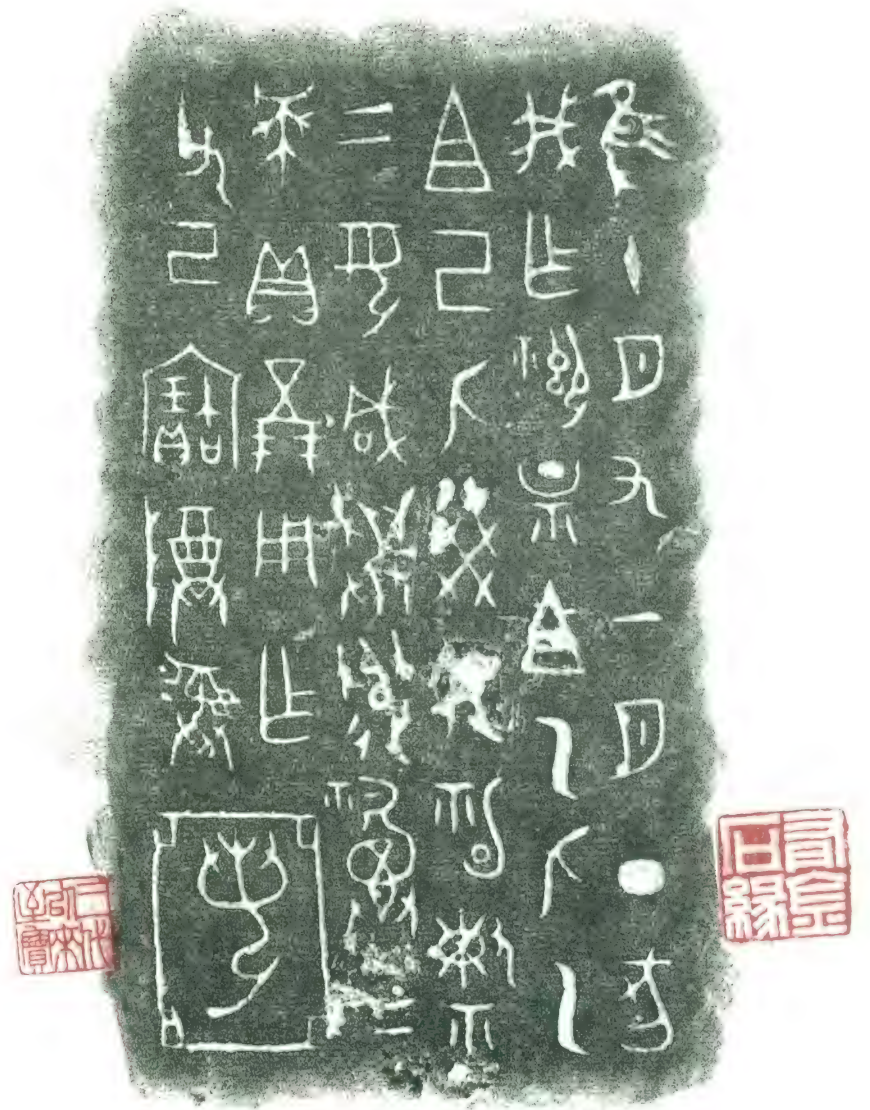 隹十月又一月丁亥
我乍禦祟且乙匕乙
且己匕癸征礿
二母咸與遣祼二
貝五朋用乍
父己寶尊彝
亞若
有金石緣